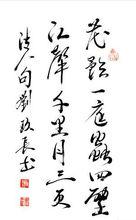 花影一庭蟲四壁
江聲千里月三更
清人句劉致長書